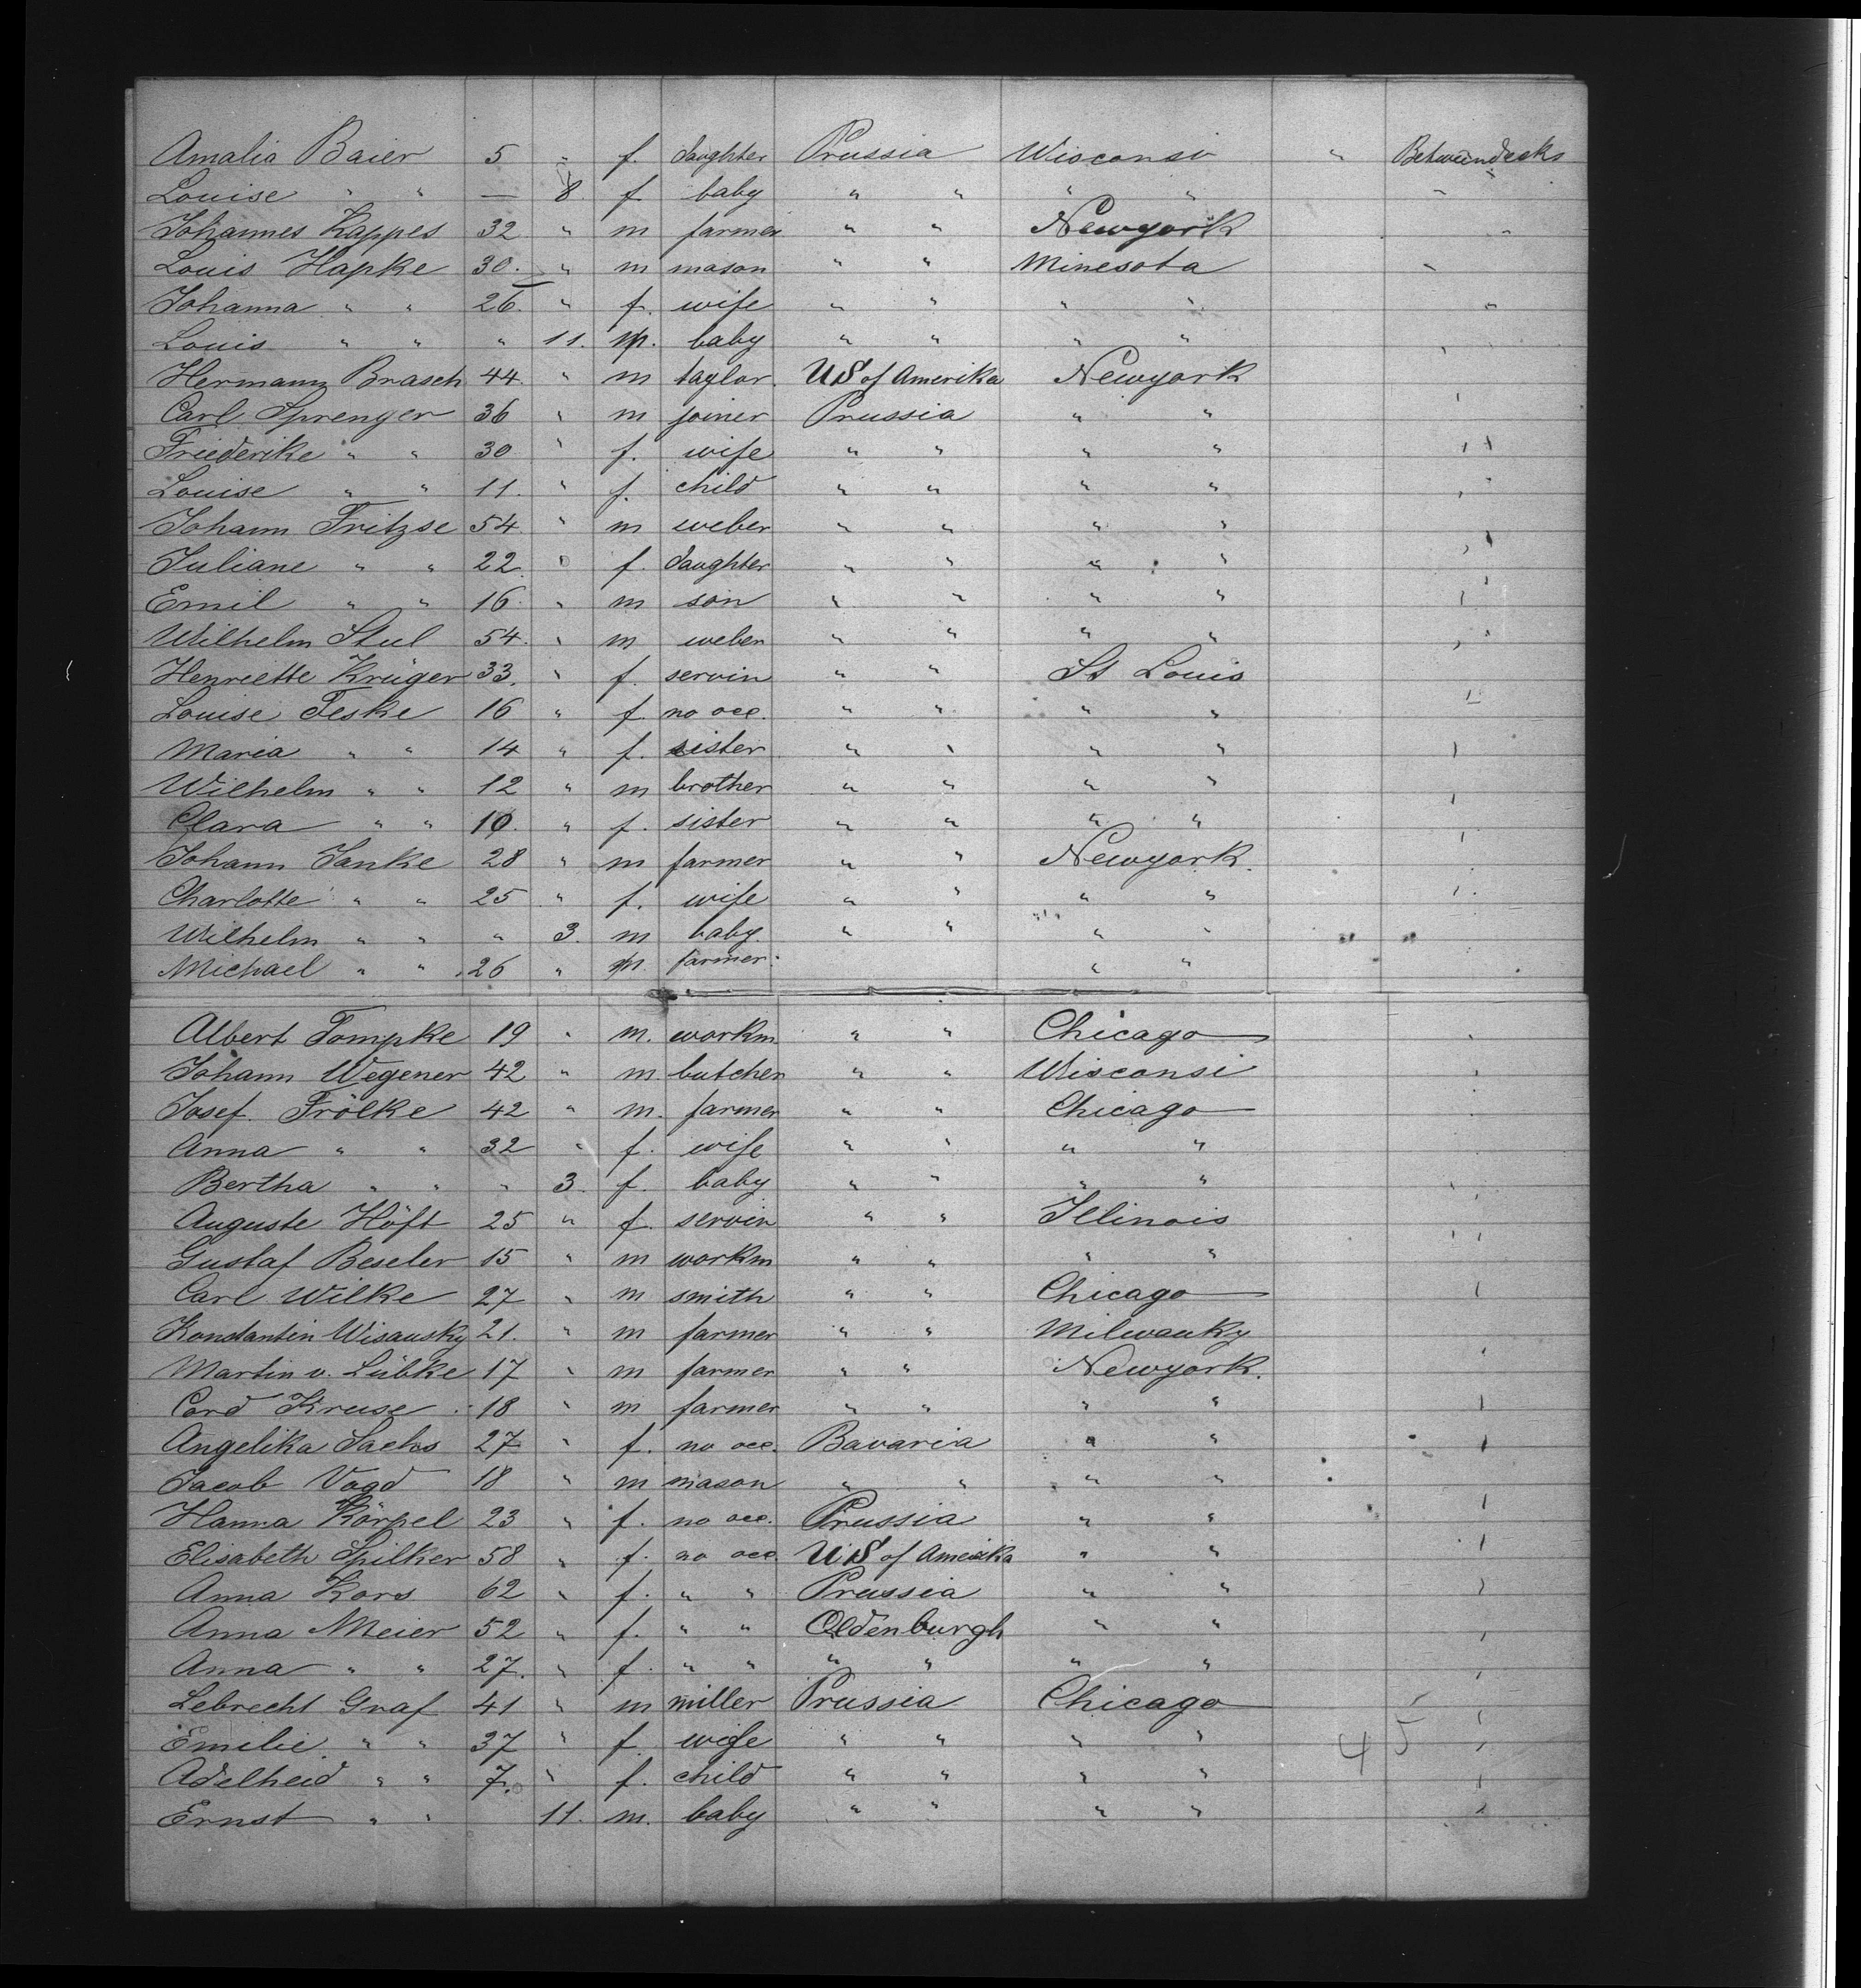 Amalia Baier 5 " f. daughter Prussia Wisconsi " Betweendecks
Louise " " — 8. f baby " " " " "
Johannes Kappes 32 " m farmer " " Newyork "
Louis Hapke 30. " m mason " " Minesota "
Johanna " " 26. " f. wife " " " " "
Louis " " " 11. m. baby " " " " "
Hermann Brasch 44. " m taylor. US of Amerika Newyork "
Carl Sprenger 36 " m joiner Prussia " " "
Friederike " " 30 " f. wife " " " " "
Louise " " 11. " f. child " " " " "
Johann Fritzse 54. " m weber " " " " "
Juliane " " 22. " f. daughter " " " " "
Emil " " 16. " m son " " " " "
Wilhelm Stul 54. " m weber " " " " "
Henriette Krüger 33. " f. servin " " St Louis
Louise Teske 16 " f. no occ. " " " " "
Maria " " 14 " f. sister " " " " "
Wilhelm " " 12 " m brother " " " "
Clara " " 10. " f. sister " " " " "
Johann Janke 28 " m farmer " " Newyork. "
Charlotte " " 25 " f. wife " " " " "
Wilhelm " " " 3. m baby. " " " "
Michael " " 26 " m. farmer. " "
Albert Tompke 19 " m. workm. " " Chicago "
Johann Wegener 42 " m. butcher " " Wisconsi "
Josef Frölke 42 " m. farmer " " Chicago "
Anna " " 32 " f. wife " " " "
Bertha " " " 3. f. baby " " " " "
Auguste Höft 25 " f. servin " " Illinois "
Gustaf Beseler 15 " m workm " " " " "
Carl Wilke 27 " m smith " " Chicago "
Konstantin Wisausky 21. " m farmer " " Milwauky
Martin v. Lübke 17 " m farmer " " Newyork. "
Cord Kruse 18 " m farmer " " " " "
Angelika Sachs 27 " f. no occ. Bavaria " " "
Jacob Vogd 18 " m mason " " " "
Hanna Körpel 23 " f. no occ. Prussia " " "
Elisabeth Spilker 58 " f. no occ. US of Amerika " " "
Anna Kors 62 " f. " " Prussia " " "
Anna Meier 52 " f. " " Oldenburgh " " "
Anna " " 27. " f. " " " " " " "
Lebrecht Graf 41 " m miller Prussia Chicago "
Emilie " " 37 " f. wife " " " " 45 "
Adelheid " " 7. " f. child " " " " "
Ernst " " 11. m. baby " " " " "